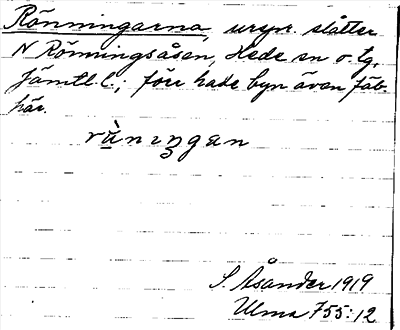 Rönningarna, urspr. slåtter
N Rönningsåsen, Hede sn o. tg,
Jämtl. l.; förr hade byn även fäb.
här.
rù̀nıŋgan
S. Åsander 1919
Ulma 755:12